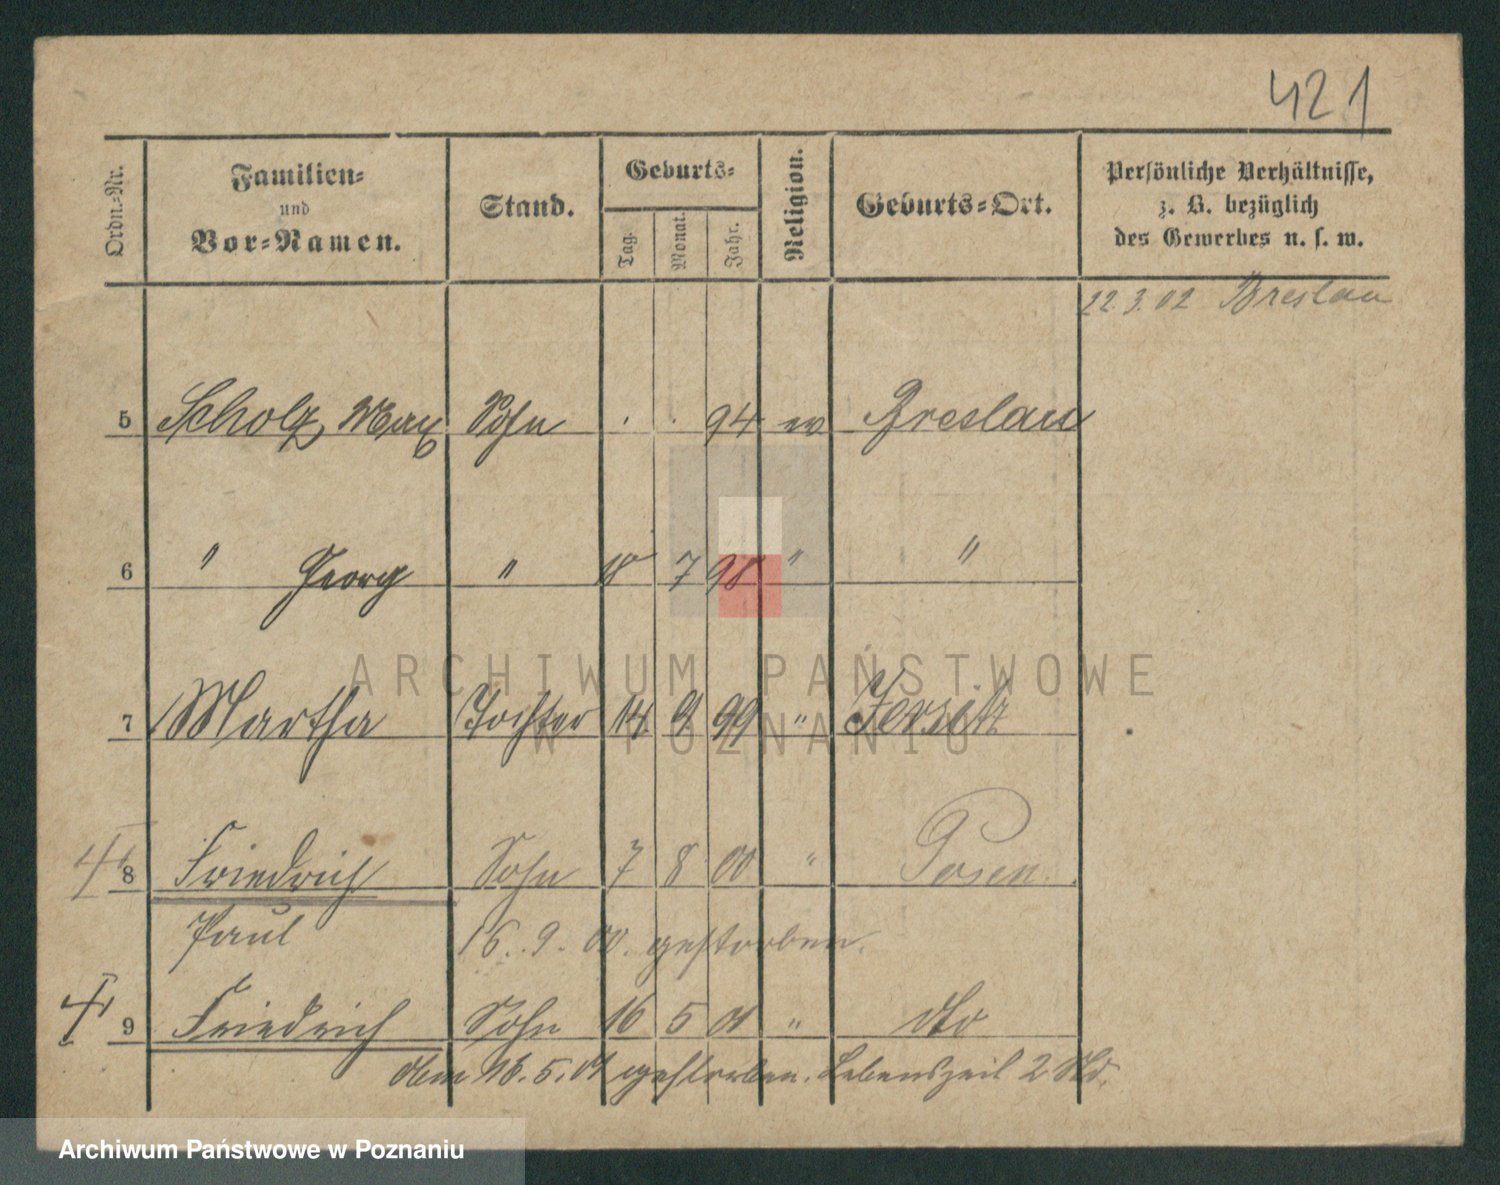 421
Ordn.-Nr. Familien- und Vor-Namen. Stand. Geburts- Tag. Monat. Jahr. Religion. Geburts-Ort. Persönliche Verhältnisse, z. B. bezüglich des Gewerbes u. s. w.
22.3.02 Breslau
5 Scholz, Max Sohn . . 94 ev Breslau
6 " Georg " 18 7 98 " "
7 Martha Tochter 14 9 99 " Jersitz
8 Friedrich Sohn 7 8 00 " Posen.
Paul 16.9.00. gestorben.
9 Friedrich Sohn 16 5 01 " dto
dem 16.5.01 gestorben. Lebenszeit 2 Std.
ARCHIWUM PAŃSTWOWE
W POZNANIU
Archiwum Państwowe w Poznaniu